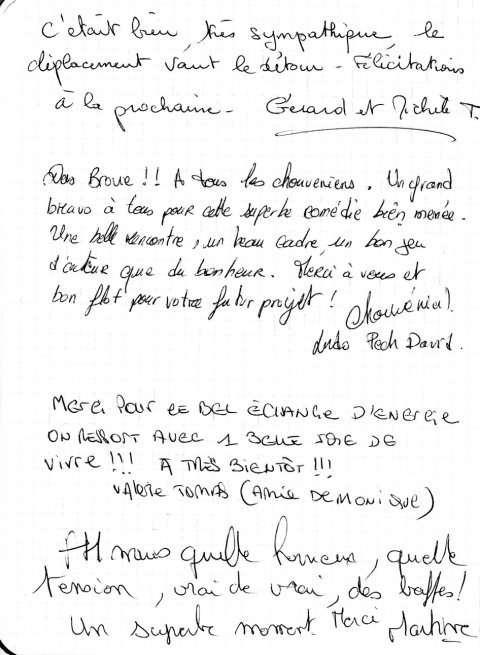 C'était bien, très sympathique, le
déplacement vaut le détour - Félicitations
à la prochaine - Gérard et Michèle T.
Bravo !! A tous les chouveniens. Un grand
bravo à tous pour cette superbe comédie bien menée.
Une belle rencontre, un beau cadre, un bon jeu
d'acteur que du bonheur. Merci à vous et
bon flot pour votre futur projet !
Ludo Pech David.
MERCI POUR CE BEL ÉCHANGE D'ENERGIE
ON RESSORT AVEC 1 BELLE JOIE DE
VIVRE !!! A TRÈS BIENTÔT !!!
VALERIE TOMAS (AMIE DE MONIQUE)
AH mais quelle humeur, quelle
tension, vrai de vrai, des baffes !
Un superbe moment. Merci Martine